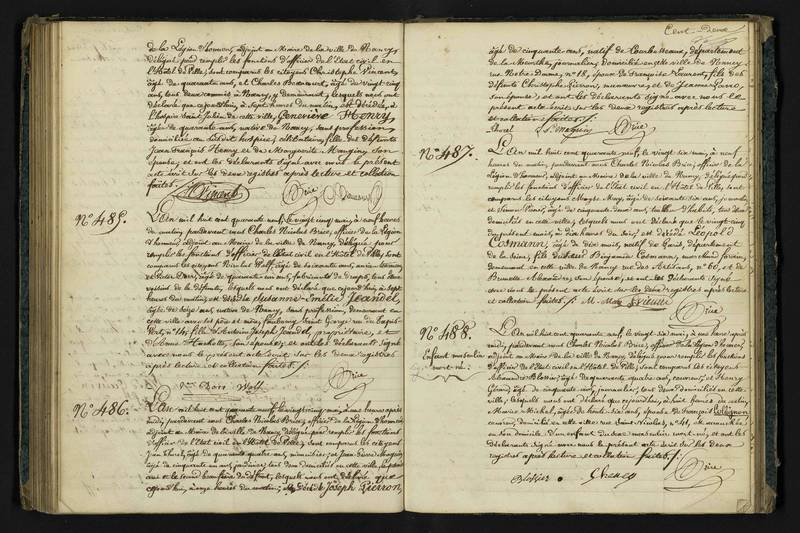 de la Légion d'honneur, adjoint au Maire de la ville de Nancy,
délégué pour remplir les fonctions d'officier de l'Etat civil en
l'Hôtel de Ville, sont comparus les citoyens Christophe Vincent,
âgé de quarante ans, et Charles âgé de vingt cinq
ans, tous deux à Nancy, y demeurant, lesquels nous ont
déclaré que cejourd'hui, à sept heures du matin, est décédée, à
l'hospice Saint Julien de cette ville, Geneviève Henry,
âgée de quarante ans, native de Nancy, sans profession,
domiciliée audit hospice, célibataire, fille des défunts
Jean François Henry et de Marguerite Mangin, son
épouse, et ont les déclarants signé avec nous le présent
acte écrit sur les deux registres après lecture et collation
faites./.
Vincent Brice
N° 485.
L'An mil huit cent quarante neuf, le vingt cinq mai, à neuf heures
du matin, pardevant nous Charles Nicolas Brice, officier de la Légion
d'honneur, adjoint au Maire de la ville de Nancy, délégué pour
remplir les fonctions d'officier de l'Etat civil en l'Hôtel de Ville, sont
comparus les citoyens Nicolas Wolff, âgé de soixante ans,
et âgé de quarante six ans, fabricant de draps, tous deux
voisins de la défunte, lesquels nous ont déclaré que cejourd'hui, à sept
heures du matin, est décédée Susanne-Emélie Jeandel,
âgée de ans, native de Nancy, sans profession, demeurant en
cette ville avec ses père et mère, faubourg Saint George, rue du
N° 114, fille d'Antoine Joseph Jeandel, propriétaire, et
d'Anne son épouse; et ont les déclarants signé
avec nous le présent acte écrit sur les deux registres
après lecture et collation faites./.
Wolff Brice
N° 486.
L'An mil huit cent quarante neuf, le vingt cinq mai, à heures après
midi, pardevant nous Charles Nicolas Brice, officier de la Légion d'honneur,
adjoint au Maire de la ville de Nancy, délégué pour remplir les fonctions
d'officier de l'Etat civil en l'Hôtel de Ville, sont comparus les citoyens
Jean âgé de quarante quatre ans, et Jean Pierre
âgé de cinquante un ans, jardinier, tous deux domiciliés en cette ville, le premier
et le second beau frère du défunt, lesquels nous ont déclaré que
cejourd'hui, à onze heures du matin, est décédé Joseph Pierron,
Cent Deux
âgé de cinquante ans, natif de département
de la Meurthe, journalier, domicilié en cette ville de Nancy,
rue Notre-Dame, n° 18, époux de Françoise Laurent, fils des
défunts Christophe Pierron, manœuvre, et de Jeanne
son épouse; et ont les déclarants signé avec nous le
présent acte écrit sur les deux registres après lecture
et collation faites./.
Brice
N° 487.
L'An mil huit cent quarante neuf, le vingt six mai, à neuf
heures du matin, pardevant nous Charles Nicolas Brice, officier de la
Légion d'honneur, adjoint au Maire de la ville de Nancy, délégué pour
remplir les fonctions d'officier de l'Etat civil en l'Hôtel de Ville, sont
comparus les citoyens May, âgé de soixante six ans,
et Simon âgé de cinquante deux ans, tous deux
domiciliés en cette ville, lesquels nous ont déclaré que le vingt cinq
du présent mois, à dix heures du soir, est décédé Léopold
Cosmann, âgé de dix mois, natif de Paris, département
de la Seine, fils de Benjamin Cosmann, marchand forain,
demeurant en cette ville de Nancy, rue des Artisans, n° 60, et de
Brunette Alexandre, son épouse; et ont les déclarants signé
avec nous le présent acte écrit sur les deux registres après lecture
et collation faites./.
Brice
N° 488.
Enfant masculin
mort-né.
L'An mil huit cent quarante neuf, le vingt six mai, à une heure après
midi, pardevant nous Charles Nicolas Brice, officier de la Légion d'honneur,
adjoint au Maire de la ville de Nancy, délégué pour remplir les fonctions
d'officier de l'Etat civil en l'Hôtel de Ville, sont comparus les citoyens
âgé de quarante ans, et Henry
âgé de ans, journalier, tous deux domiciliés en cette
ville, lesquels nous ont déclaré que cejourd'hui, à huit heures du matin,
Marie Michel, âgée de trente six ans, épouse de François Collignon
domicilié en cette ville, rue Saint Nicolas, n° 41, est accouchée
en son domicile d'un enfant du sexe masculin mort-né; et ont les
déclarants signé avec nous le présent acte écrit sur les deux
registres après lecture et collation faites./.
Brice